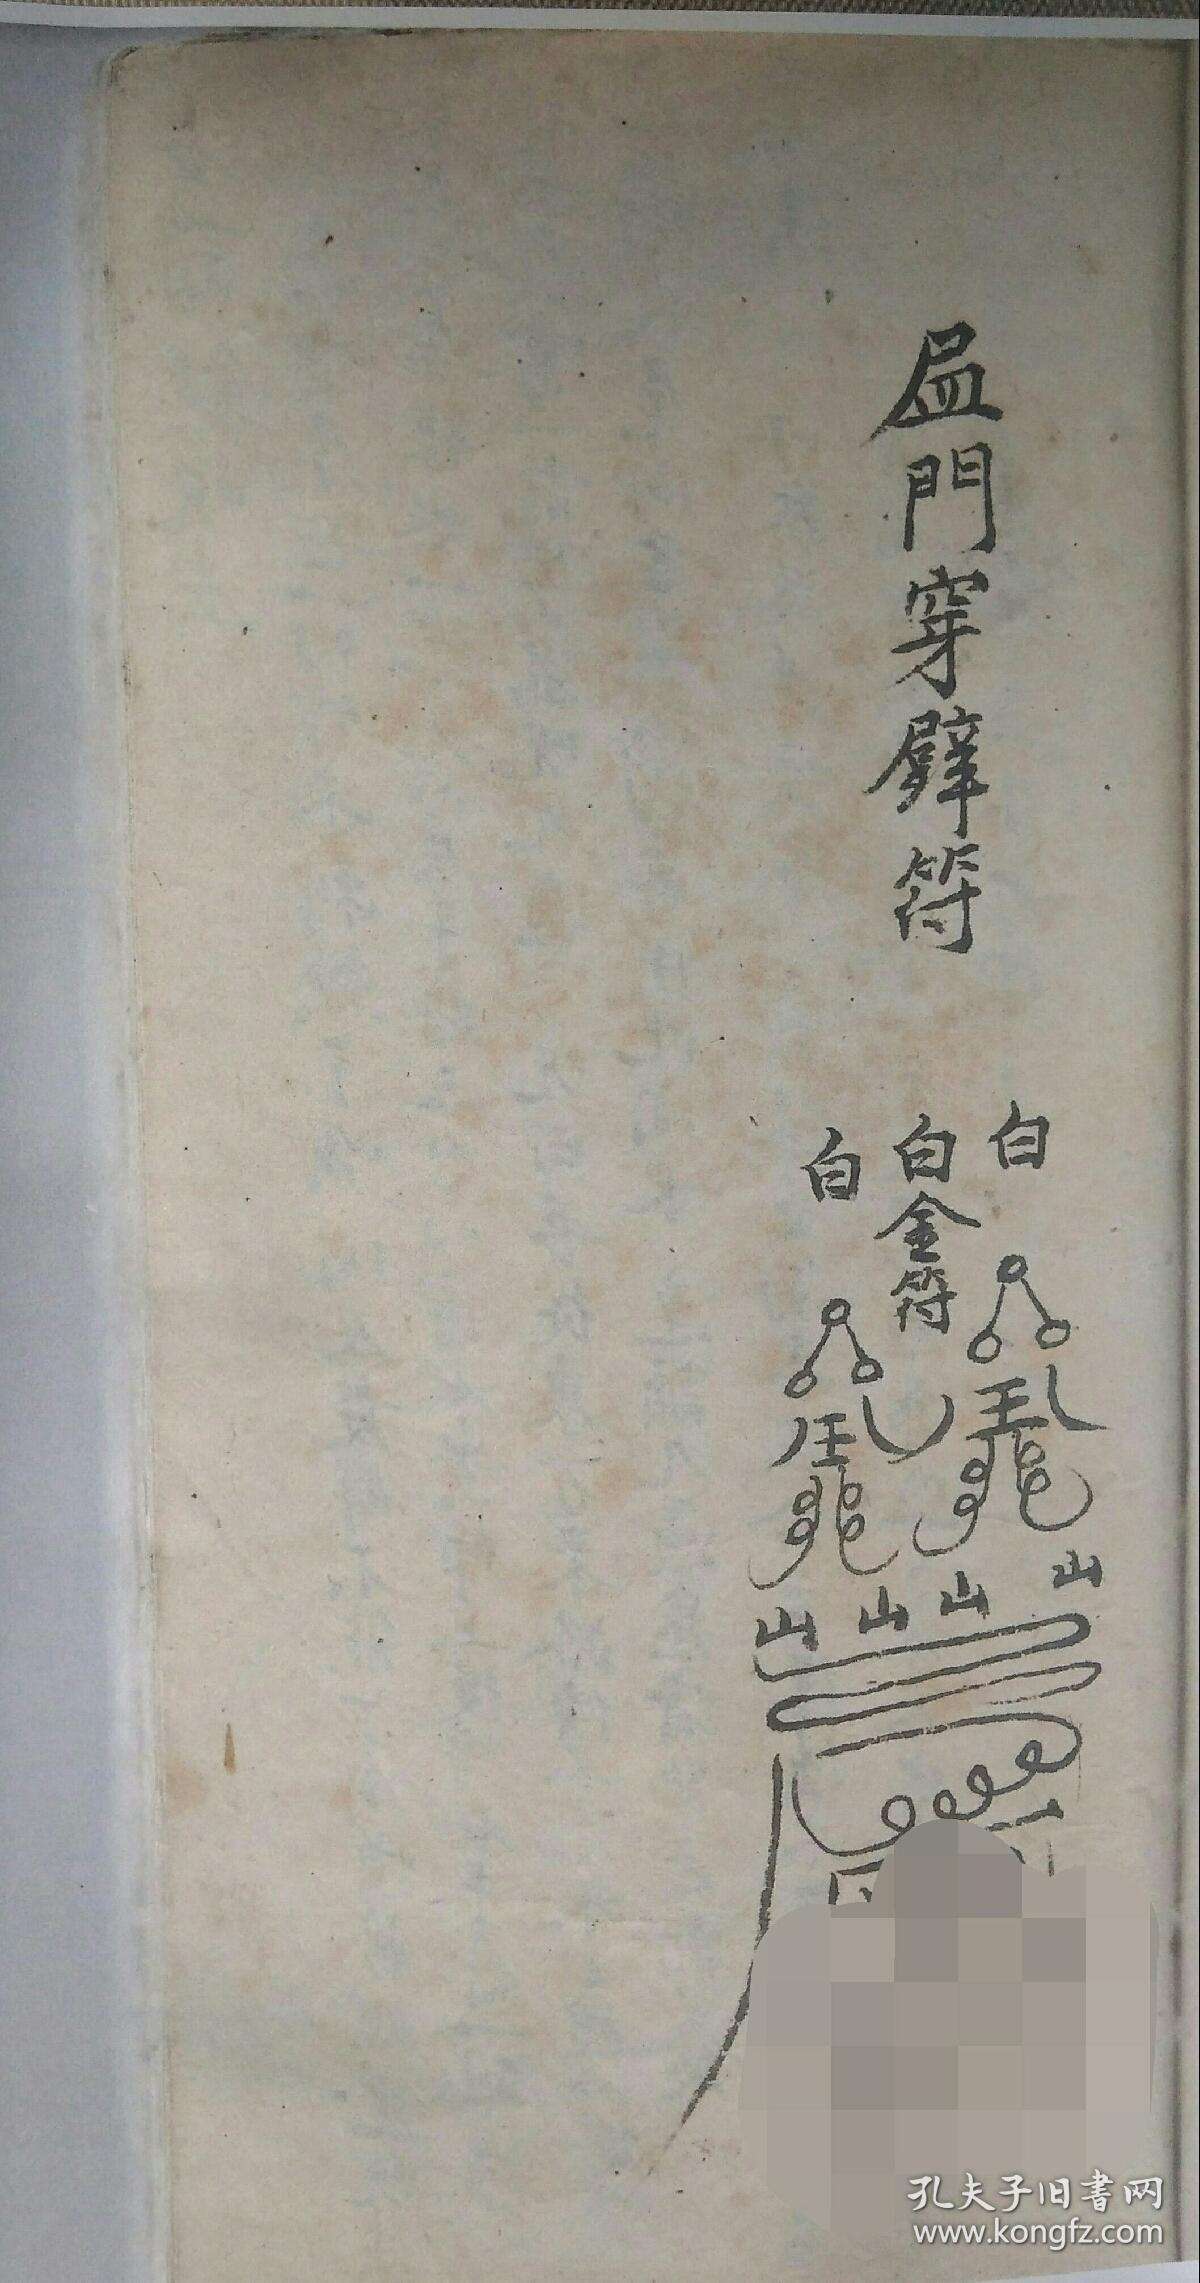 門穿劈符
白
白金符
白
王
王
山 山 山 山
孔夫子旧書网
www.kongfz.com